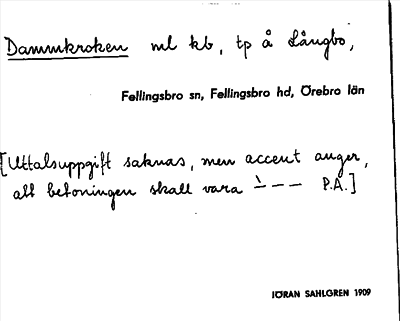 Dammkroken ml kb, tp å Långbo,
Fellingsbro sn, Fellingsbro hd, Örebro län
[Uttalsuppgift saknas, men accent anger,
att betoningen skall vara ˋ– – – P.Å.]
JÖRAN SAHLGREN 1909